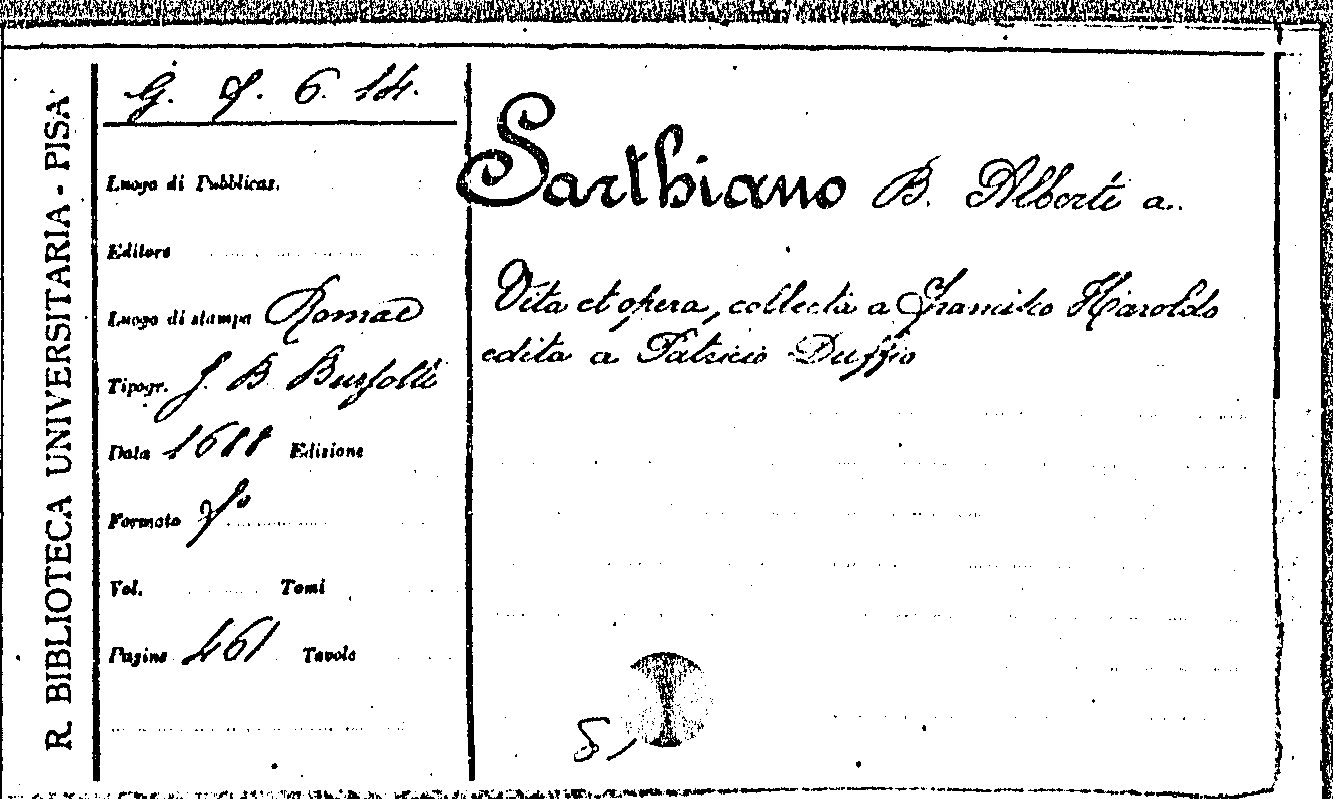 R. BIBLIOTECA UNIVERSITARIA - PISA
G. f. 6. 14.
Luogo di Pubblicaz.
Editore
Luogo di stampa Romae
Tipogr. J. B. Bussotti
Data 1688 Edizione
Formato f°
Vol. Tomi
Pagine 461 Tavole
Sarthiano B. Alberti a.
Vita et opera, collecta a Francisco Haroldo
edita a Patricio Duffio